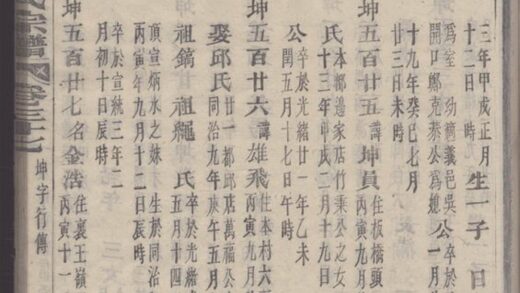 三年甲戌正月
十二日時
生一子 日
為室 幼繼義邑吳公 卒於
開口鄔克泰公為媳 一月
十九年癸巳七月
廿三日未時
坤五百廿五 諱坤員 住板橋頭
丙寅九月
氏 本都邊家店竹秉公之女
十三年甲戌二月十九日
卒於光緒廿一年乙未
公閏五月十七日午時
坤五百廿六 諱雄飛 住本村六
丙寅九月
娶邱氏 廿一都邱店萬福公
同治九年庚午五月
祖鎬 祖繩 氏 卒於光緒
五月十四
頂宣炳水之妹 生於同治
丙寅年九月十二日辰時
卒於宣統三年二
月初十日辰時
坤五百廿七 名金浩 住裏王嶺
丙寅十一
氏宗譜 卷三十七 坤字行傳